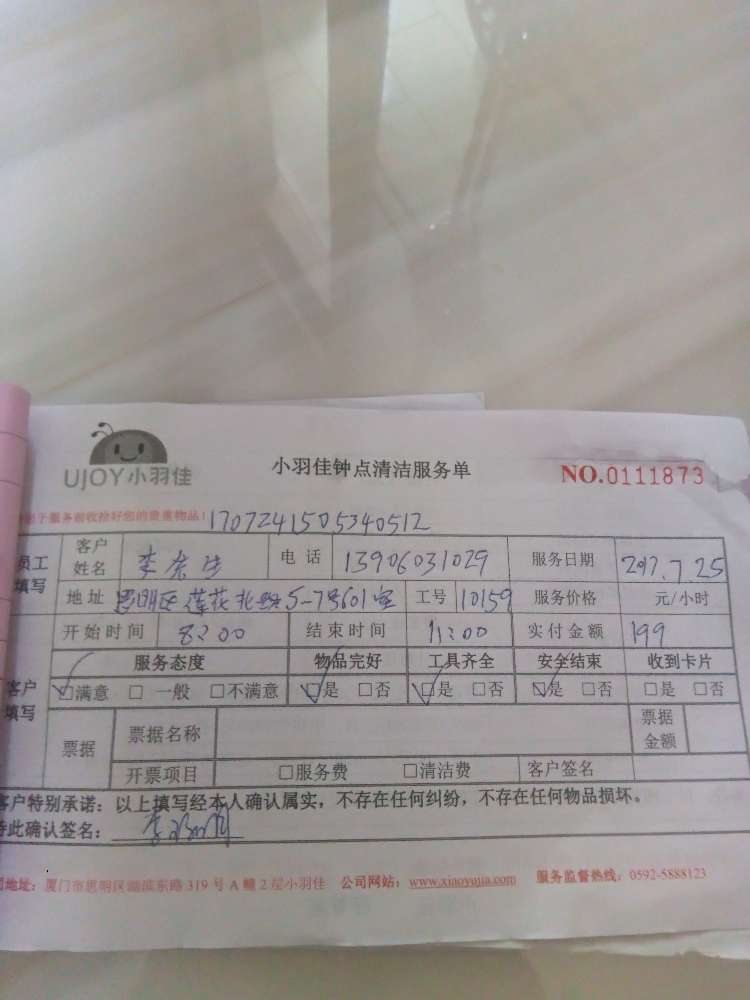 UJOY小羽佳
小羽佳钟点清洁服务单
NO.0111873
于服务前收拾好您的贵重物品！1707241505340512
员工填写 客户姓名 李 电话 13906031029 服务日期 2017.7.25
地址 思明区莲花北路5-7号601室 工号 10159 服务价格 元/小时
开始时间 8:00 结束时间 11:00 实付金额 199
客户填写 服务态度 物品完好 工具齐全 安全结束 收到卡片
☑满意 □一般 □不满意 ☑是 □否 ☑是 □否 ☑是 □否 □是 □否
票据 票据名称 票据金额
开票项目 □服务费 □清洁费 客户签名
客户特别承诺：以上填写经本人确认属实，不存在任何纠纷，不存在任何物品损坏。
此确认签名：李
地址：厦门市思明区湖滨东路319号A幢2层小羽佳 公司网站：www.xiaoyujia.com 服务监督热线：0592-5888123